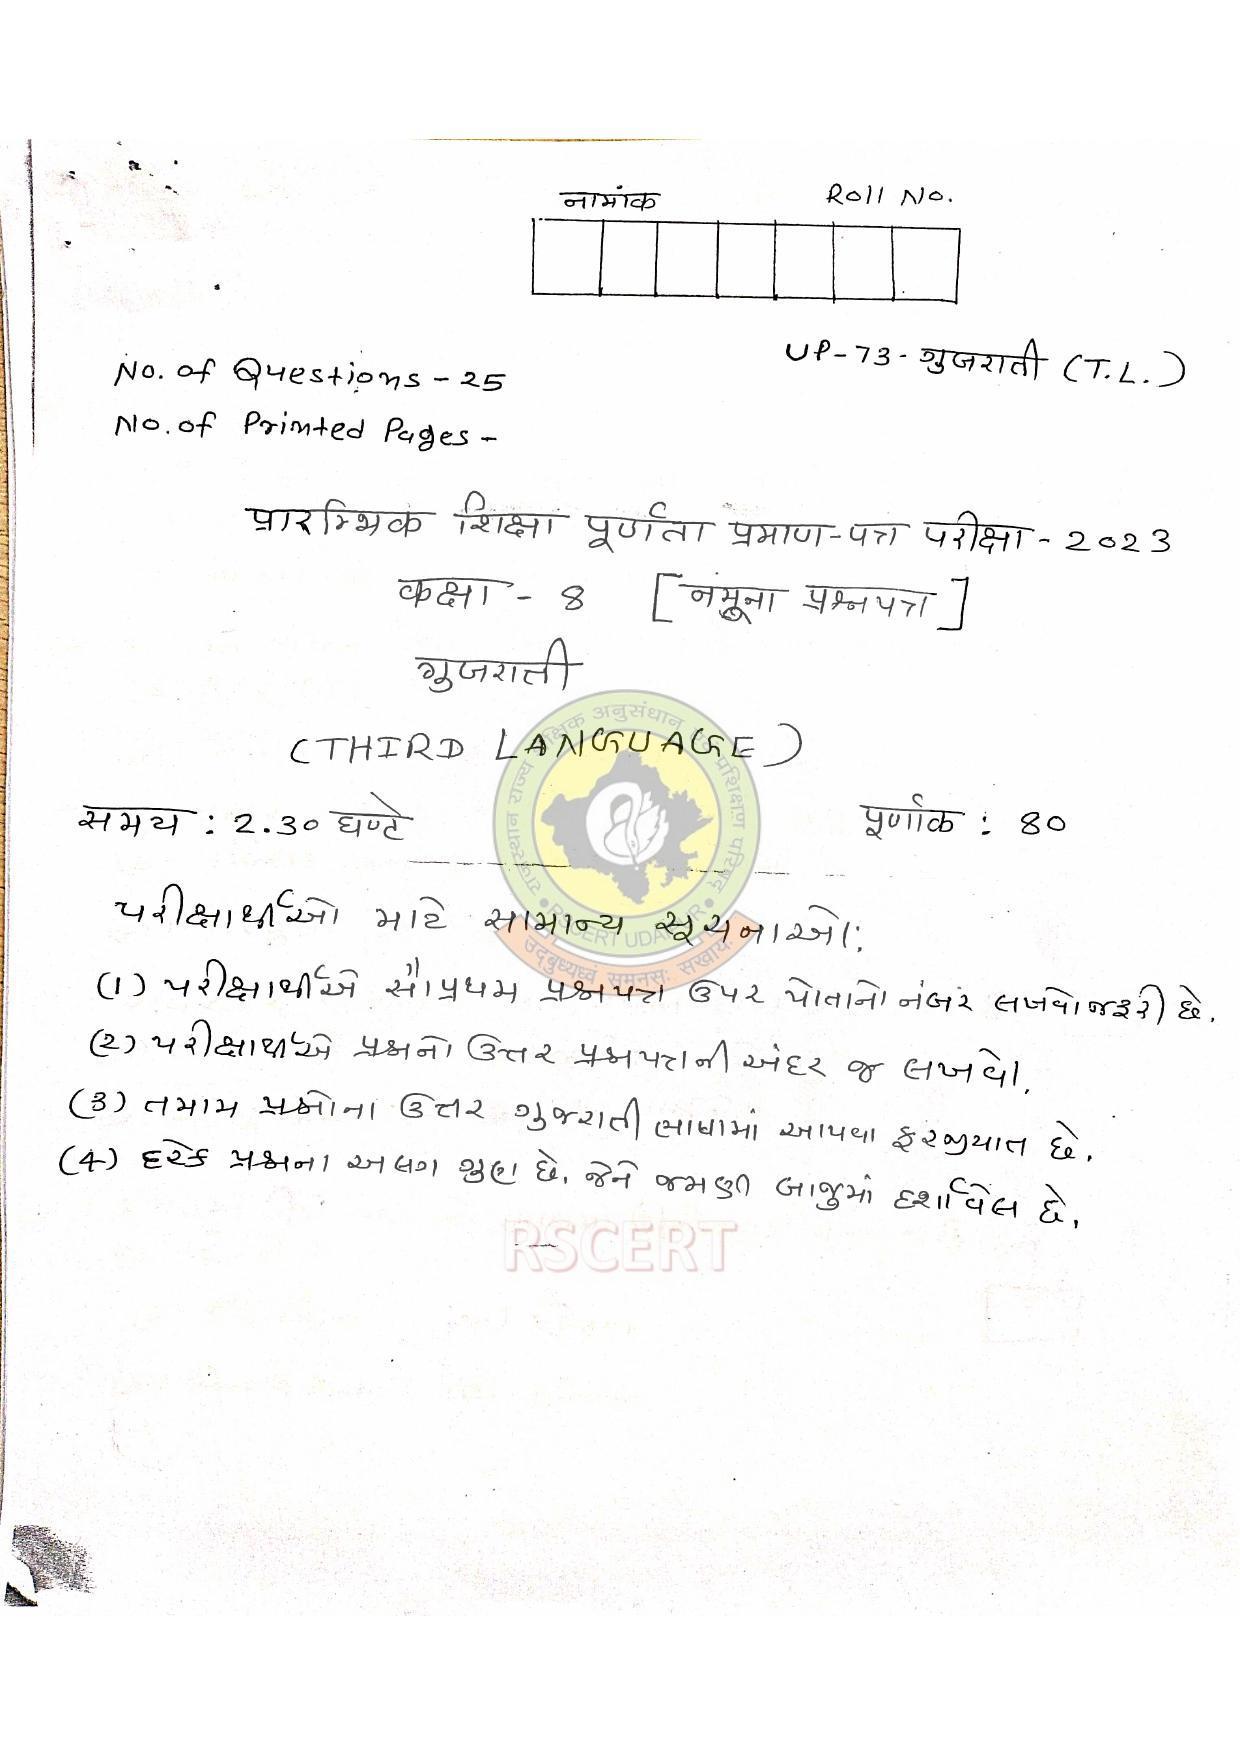 नामांक Roll No.
UP-73-ગુજરાતી (T.L.)
No. of Questions - 25
No. of Printed Pages -
प्रारम्भिक शिक्षा पूर्णता प्रमाण-पत्र परीक्षा - 2023
कक्षा - 8 [नमूना प्रश्नपत्र]
गुजराती
(THIRD LANGUAGE)
समय : 2.30 घण्टे पूर्णांक : 80
પરીક્ષાર્થીઓ માટે સામાન્ય સૂચનાઓ:
(1) પરીક્ષાર્થીએ સૌપ્રથમ પ્રશ્નપત્ર ઉપર પોતાનો નંબર લખવો જરૂરી છે.
(2) પરીક્ષાર્થીએ પ્રશ્નનો ઉત્તર પ્રશ્નપત્રની અંદર જ લખવો.
(3) તમામ પ્રશ્નોના ઉત્તર ગુજરાતી ભાષામાં આપવા ફરજીયાત છે.
(4) દરેક પ્રશ્નના અલગ ગુણ છે. જેને જમણી બાજુમાં દર્શાવેલ છે.
RSCERT UDAIPUR
उद्बुध्यध्वं समनसः सखायः
RSCERT